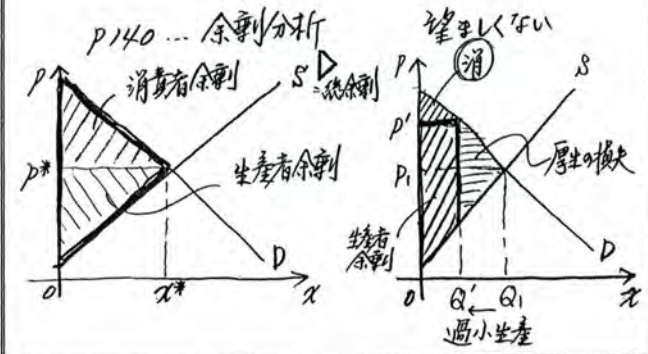 P140… 余剰分析
P
消費者余剰
S
▷=総余剰
P*
生産者余剰
D
0
x*
x
望ましくない
消
P
S
P'
P1
厚生の損失
生産者
余剰
D
0
Q' ← Q1
x
過小生産